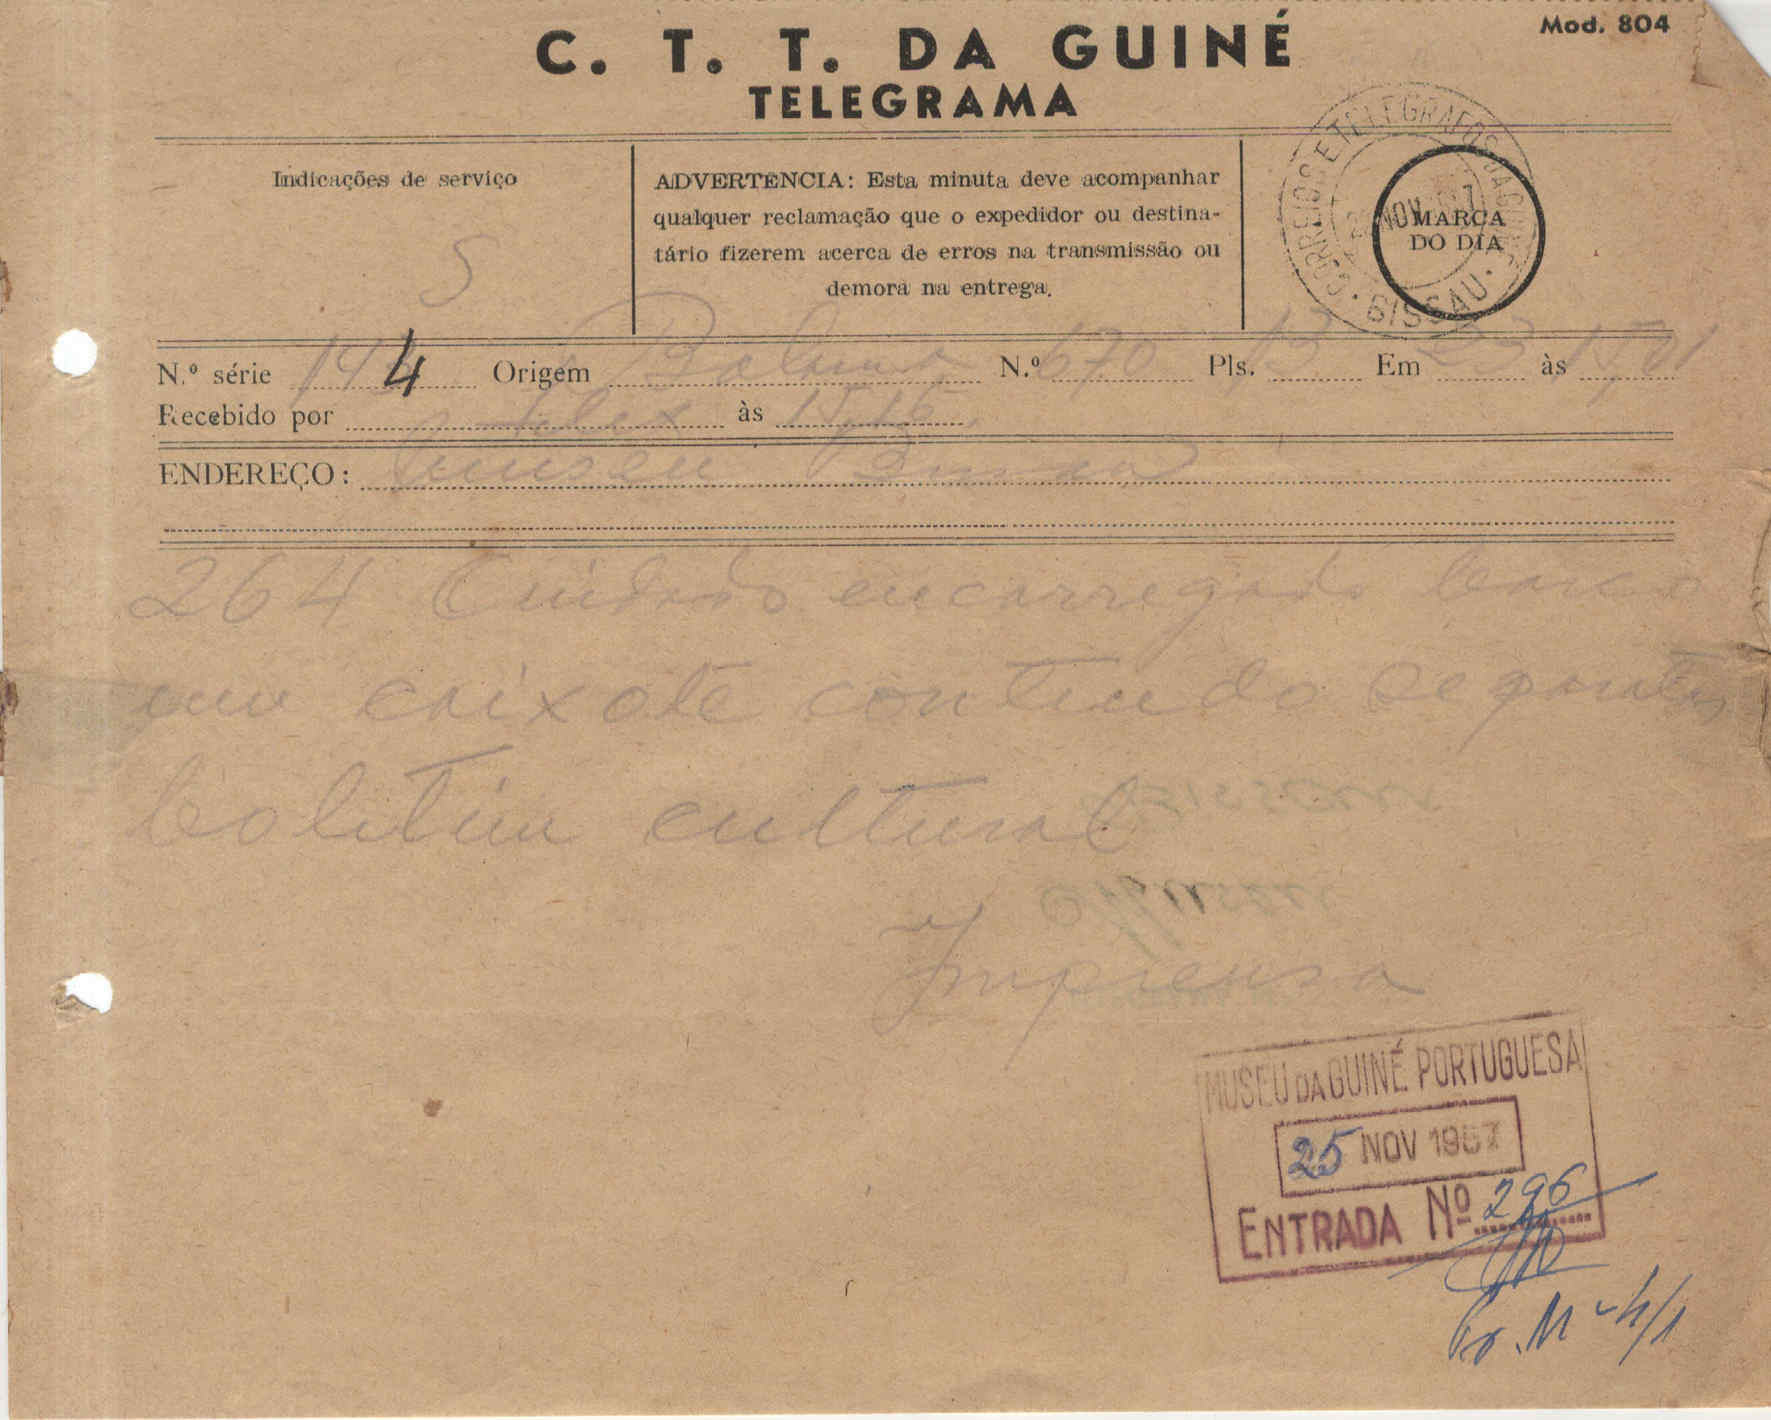 Mod. 804
C. T. T. DA GUINÉ
TELEGRAMA
Indicações de serviço
S
ADVERTENCIA: Esta minuta deve acompanhar
qualquer reclamação que o expedidor ou destina-
tário fizerem acerca de erros na transmissão ou
demora na entrega.
CORREIOS E TELEGRAFOS
NOV
BISSAU
MARCA
DO DIA
N.º série 144 Origem Bolama N.º 670 Pls. 13 Em 23 às 1501
Recebido por Alex às 1515
ENDEREÇO: Museu Bissau
264 Cuidado encarregado barco
um caixote contendo separatas
boletim cultural
Imprensa
MUSEU DA GUINÉ PORTUGUESA
25 NOV 1967
ENTRADA Nº 296